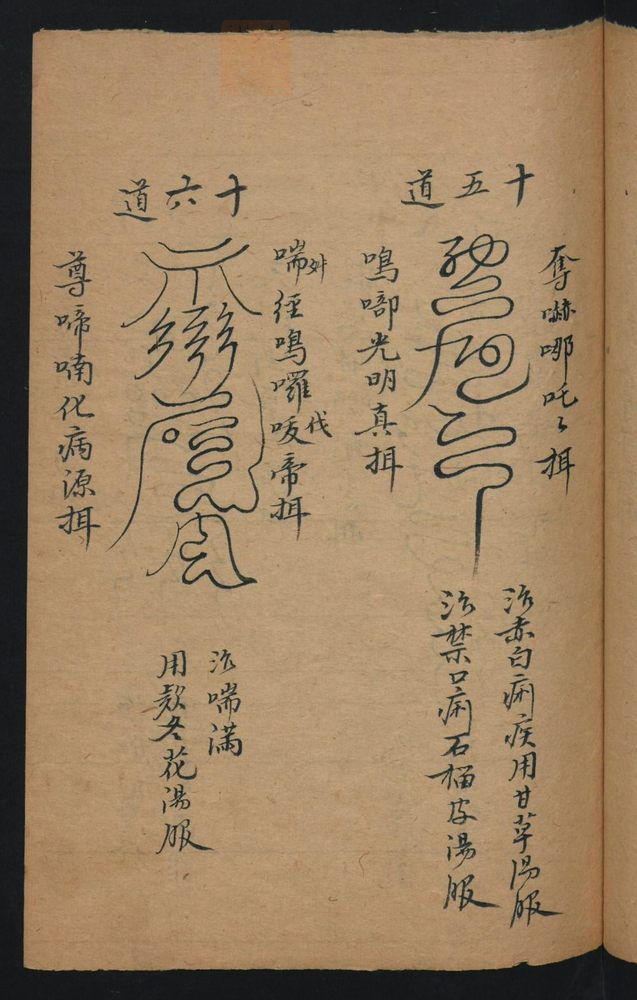 十五道
奪嚇哪吒〻揖
鳴唧光明真揖
治赤白痢疾用甘草湯服
治禁口痢石榴皮湯服
十六道
喘 徑鳴囉 帝揖
尊啼喃化病源揖
治喘滿
用款冬花湯服